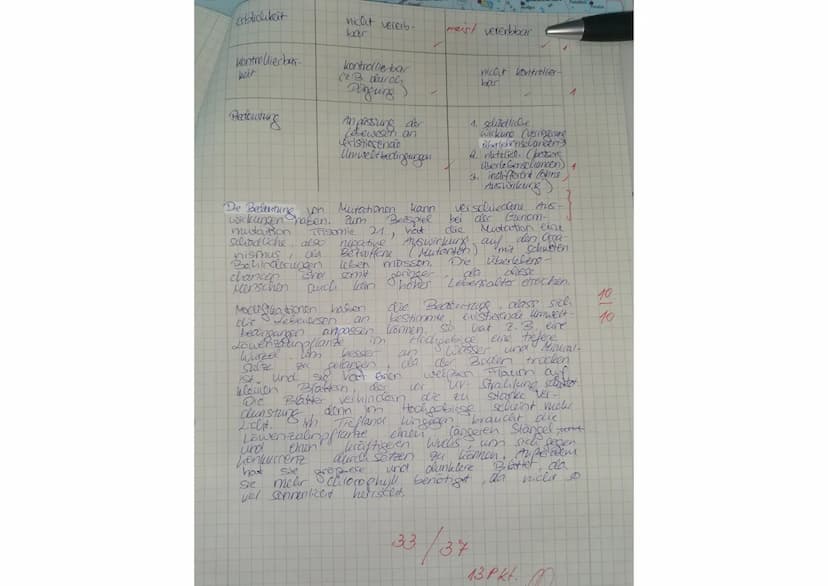 Erblichkeit nicht vererb- meist vererbbar
bar
Kontrollierbar- kontrollierbar nicht kontrollier-
keit (z.B. durch bar
Düngung) 1
Bedeutung Anpassung der 1. schädliche
Lebewesen an Wirkung (verringerte
existierende Überlebenschancen)
Umweltbedingungen 2. nützlich (bessere
Überlebenschancen) 1
3. indifferent (ohne
Auswirkung)
Die Bedeutung von Mutationen kann verschiedene Aus-
wirkungen haben. Zum Beispiel bei der Genom-
mutation Trisomie 21, hat die Mutation eine
schädliche, also negative Auswirkung auf den Orga-
nismus, da Betroffene (Mutanten) mit
Behinderungen leben müssen. Die Überlebens-
chancen sind somit geringer, da diese
Menschen auch kein hohes Lebensalter erreichen.
10
10
Modifikationen haben die Bedeutung, dass sich
die Lebewesen an bestimmte, existierende Umwelt-
bedingungen anpassen können. So hat z.B. eine
Löwenzahnpflanze im Hochgebirge eine tiefere
Wurzel um besser an Wasser und Mineral-
salze zu gelangen, da der Boden trocken
ist und sie hat einen weißen Filzraum auf
kleinen Blättern, der vor UV-Strahlung schützt.
Die Blätter verhindern die zu starke Ver-
dunstung, denn im Hochgebirge scheint mehr
Licht. Im Tiefland hingegen braucht die
Löwenzahnpflanze einen längeren Stängel
und einen kräftigeren Wuchs um sich gegen
Konkurrenz durchsetzen zu können. Außerdem
hat sie größere und dunklere Blätter, da
sie mehr Chlorophyll benötigt, da nicht so
viel Sonnenlicht herrscht.
33/37
13 Pkt.